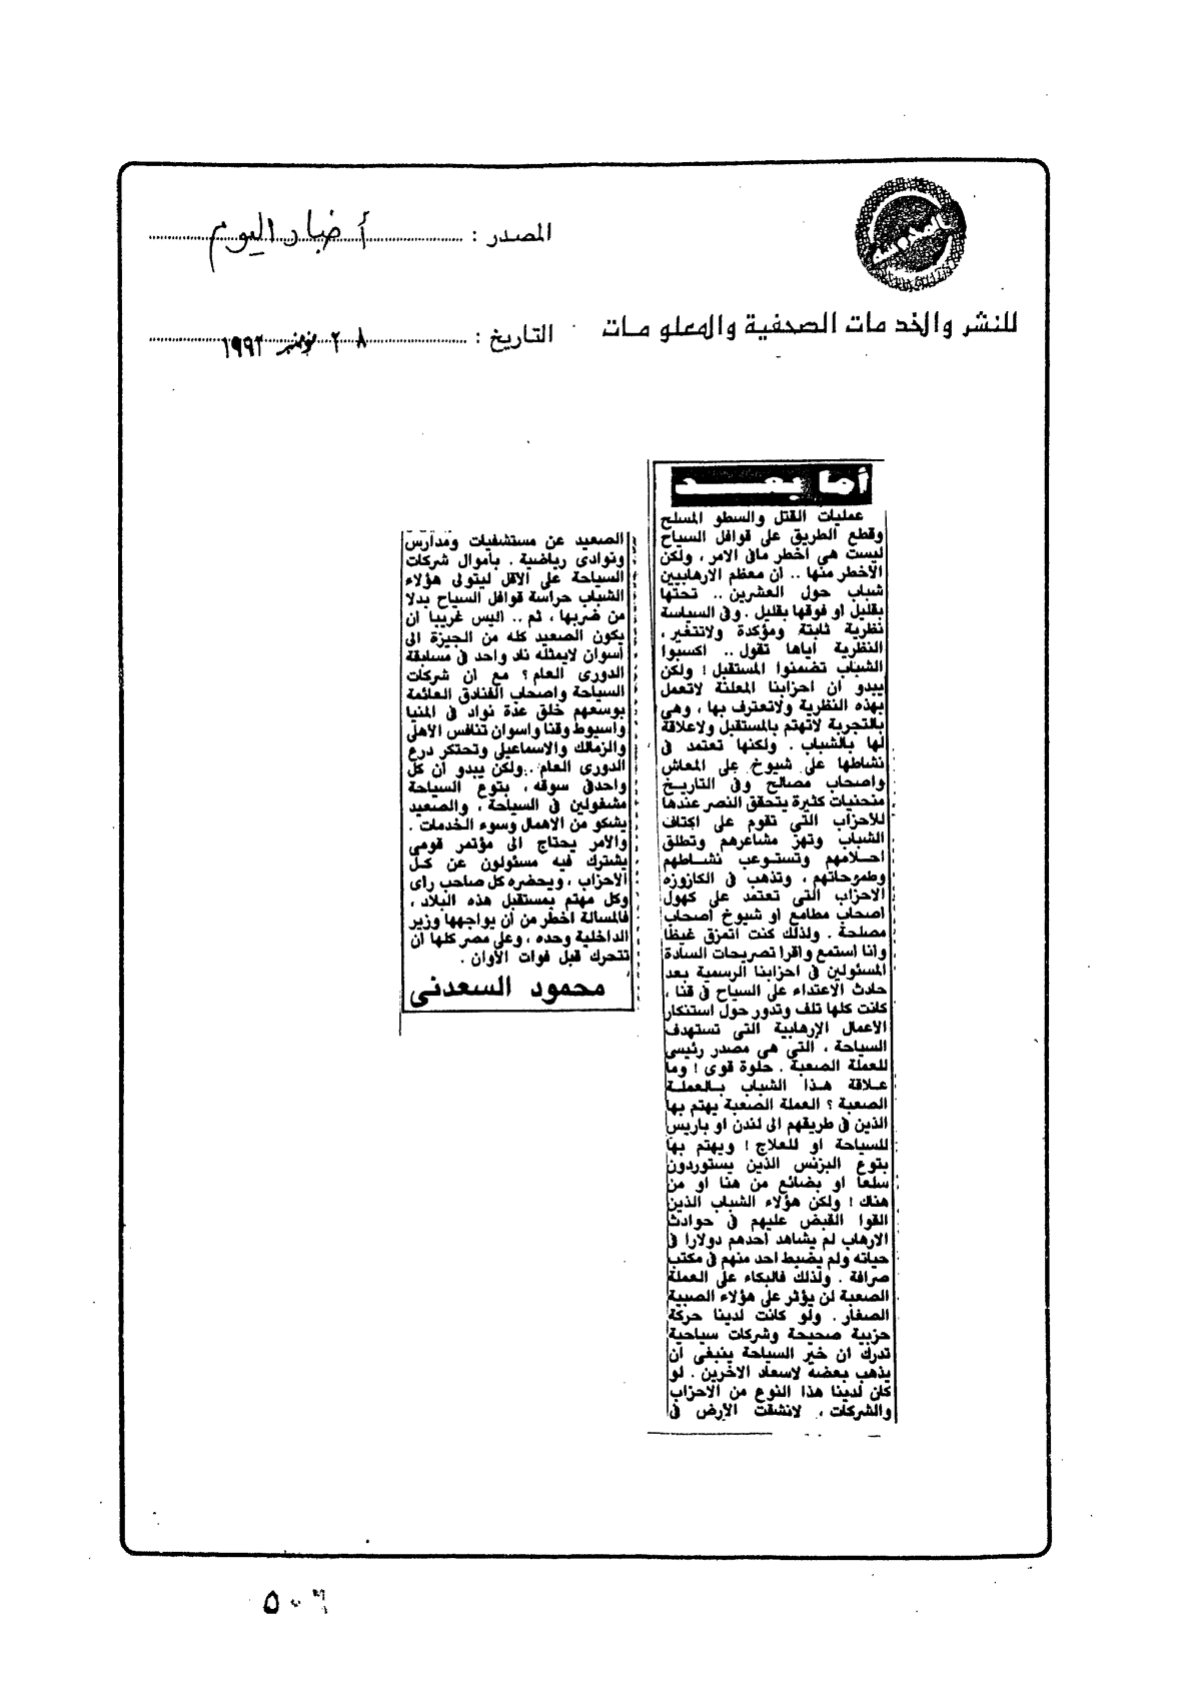 المصدر : أخبار اليوم
للنشر والخدمات الصحفية والمعلومات
التاريخ : ٢٨ نوفمبر ١٩٩٢
أما بعد
عمليات القتل والسطو المسلح
وقطع الطريق على قوافل السياح
ليست هى أخطر مافى الامر ، ولكن
الأخطر منها .. ان معظم الارهابيين
شباب حول العشرين .. تحتها
بقليل او فوقها بقليل . وفى السياسة
نظرية ثابتة ومؤكدة ولاتتغير ،
النظرية اياها تقول .. اكسبوا
الشباب تضمنوا المستقبل ! ولكن
يبدو ان احزابنا المعلنة لاتعمل
بهذه النظرية ولاتعترف بها ، وهى
بالتجربة لاتهتم بالمستقبل ولاعلاقة
لها بالشباب . ولكنها تعتمد فى
نشاطها على شيوخ على المعاش
واصحاب مصالح وفى التاريخ
منحنيات كثيرة يتحقق النصر عندها
للأحزاب التى تقوم على اكتاف
الشباب وتهز مشاعرهم وتطلق
احلامهم وتستوعب نشاطهم
وطموحاتهم ، وتذهب فى الكازوزه
الاحزاب التى تعتمد على كهول
اصحاب مطامع او شيوخ اصحاب
مصلحة . ولذلك كنت اتمزق غيظا
وانا استمع واقرا تصريحات السادة
المسئولين فى احزابنا الرسمية بعد
حادث الاعتداء على السياح فى قنا ،
كانت كلها تلف وتدور حول استنكار
الأعمال الإرهابية التى تستهدف
السياحة ، التى هى مصدر رئيسى
للعملة الصعبة . حلوة قوى ! وما
علاقة هذا الشباب بالعملة
الصعبة ؟ العملة الصعبة يهتم بها
الذين فى طريقهم الى لندن او باريس
للسياحة او للعلاج ! ويهتم بها
بتوع البزنس الذين يستوردون
سلعا او بضائع من هنا او من
هناك ! ولكن هؤلاء الشباب الذين
القوا القبض عليهم فى حوادث
الارهاب لم يشاهد أحدهم دولارا فى
حياته ولم يضبط احد منهم فى مكتب
صرافة . ولذلك فالبكاء على العملة
الصعبة لن يؤثر على هؤلاء الصبية
الصغار . ولو كانت لدينا حركة
حزبية صحيحة وشركات سياحية
تدرك ان خير السياحة ينبغى ان
يذهب بعضه لاسعاد الاخرين . لو
كان لدينا هذا النوع من الاحزاب
والشركات ، لانشقت الأرض فى
الصعيد عن مستشفيات ومدارس
ونوادى رياضية . بأموال شركات
السياحة على الاقل ليتولى هؤلاء
الشباب حراسة قوافل السياح بدلا
من ضربها ، ثم .. اليس غريبا ان
يكون الصعيد كله من الجيزة الى
اسوان لايمثله ناد واحد فى مسابقة
الدورى العام ؟ مع ان شركات
السياحة واصحاب الفنادق العائمة
بوسعهم خلق عدة نواد فى المنيا
واسيوط وقنا واسوان تنافس الأهلى
والزمالك والاسماعيلى وتحتكر درع
الدورى العام .. ولكن يبدو ان كل
واحدفى سوقه ، بتوع السياحة
مشغولين فى السياحة ، والصعيد
يشكو من الاهمال وسوء الخدمات .
والأمر يحتاج الى مؤتمر قومى
يشترك فيه مسئولون عن كل
الأحزاب ، ويحضره كل صاحب راى
وكل مهتم بمستقبل هذه البلاد ،
فالمسالة اخطر من ان يواجهها وزير
الداخلية وحده ، وعلى مصر كلها ان
تتحرك قبل فوات الأوان .
محمود السعدنى
٥٠٦